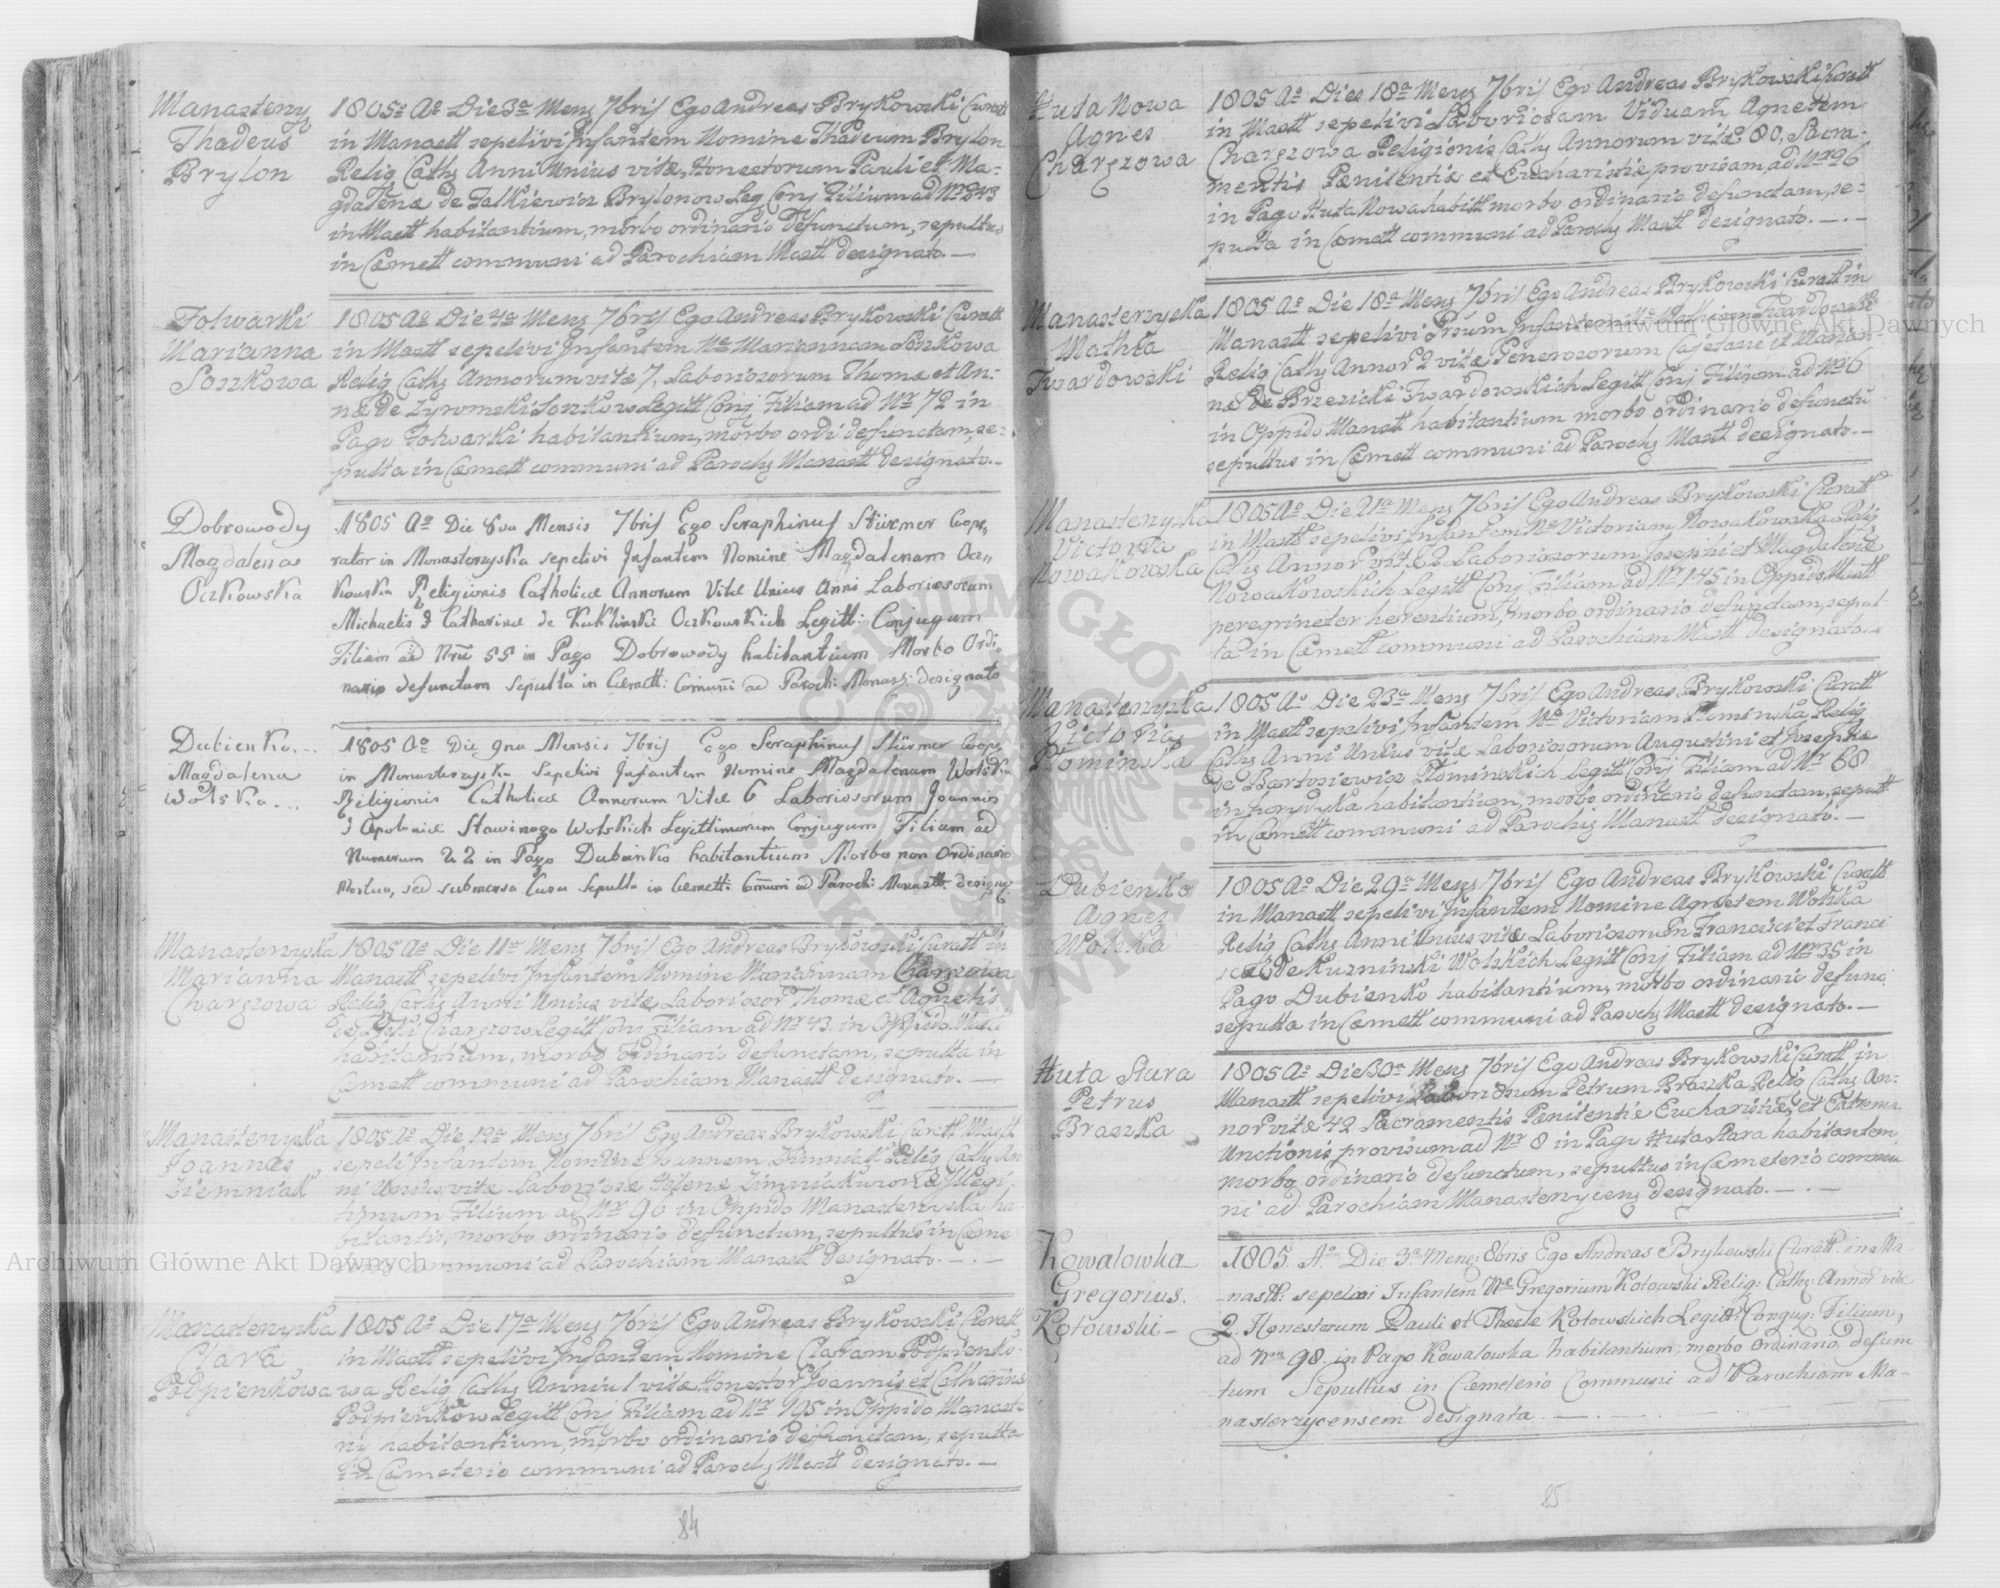 Manasterzy
Thadeus
Brylon
1805o Ao Die 3a Mens 7bris Ego Andreas Brykowski Curatt
in Manastt sepelivi Infantem Nomine Thadeum Brylon
Relig Caths Anni Unius vitæ, Honestorum Pauli et Ma-
gdalenæ de Falkiewicz Brylonow Leg Conj Filium ad Nr 243
in Mastt habitantium, morbo ordinario defunctum, sepultus
in Cæmett communi ad Parochiam Mastt designato. —
Folwarki
Marianna
Soszkowa
1805 Ao Die 4a Mens 7bris Ego Andreas Brykowski Curatt
in Mastt sepelivi Infantem Ne Mariannam Soszkowa
Relig Caths Annorum vitæ 7, Laboriosorum Thomæ et An-
næ de Zyromski Soszkow Legitt Conj Filiam ad Nr 72 in
Pago Folwarki habitantium, morbo ordi defunctam, se-
pulta in Cæmett communi ad Parochs Manastt designato. —
Dobrowody
Magdalena
Oczkowska
1805 Ao Die 8va Mensis 7bris Ego Seraphinus Stürmer Coope-
rator in Monasterzyska sepelivi Infantem Nomine Magdalenam Ocz-
kowska Religionis Catholicæ Annorum Vitæ Unius Anni Laboriosorum
Michaelis & Catharinæ de Kuklinski Oczkowskich Legitt: Conjugum
Filiam ad Nrũ 55 in Pago Dobrowody habitantium Morbo Ordi-
nario defunctum sepulta in Cemett: Comuni ad Paroch: Monast: designato
Dubienko...
Magdalena
Wolska...
1805 Ao Die 9na Mensis 7bris Ego Seraphinus Stürmer Coope
in Monasterzyska Sepelivi Infantem Nomine Magdalenam Wolska
Religionis Catholicæ Annorum Vitæ 6 Laboriosorum Joannis
& Apoloniæ Wolskich Legittimorum Conjugum Filiam ad
Numerum 22 in Pago Dubienko habitantium Morbo non Ordinario
Mortua, sed submersa Casu Sepulta in Cemett: Comuni ad Paroch: Monastt: design:
Manasterzyska
Marianna
Charszowa
1805 Ao Die 11a Mens 7bris Ego Andreas Brykowski Curatt in
Manastt sepelivi Infantem Nomine Mariannam Charszowa
Relig Caths Anni Unius vitæ Laboriosor Thomæ et Agnetis
Charszow Legitt Conj Filiam ad Nr 43 in Oppido Mast
habitantium, morbo ordinario defunctam, sepulta in
Cæmett communi ad Parochiam Manastt designato. —
Manasterzyska
Joannes
Ziemniak
1805 Ao Die 12a Mens 7bris Ego Andreas Brykowski Curatt Mastt
sepeli Infantem Nomine Joannem Relig Caths An-
ni Unius vitæ Laboriosæ Illegi-
timum Filium ad Nr 90 in Oppido Manasterzyska ha-
bitantis, morbo ordinario defunctum, sepultus in Cæme
communi ad Parochiam Manastt designato. —.—
Manasterzyska
Clara
Podpienkowa
1805 Ao Die 17a Mens 7bris Ego Andreas Brykowski Curatt
in Mastt sepelivi Infantem Nomine Claram Podpienko-
wa Relig Caths Anni 1 vitæ Honestor Joannis et Catharinæ
Podpienkow Legitt Conj Filiam ad Nr 195 in Oppido Manast
habitantium, morbo ordinario defunctam, sepulta
in Cæmeterio communi ad Parochs Mastt designato. —
84
Huta Nowa
Agnes
Charszowa
1805 Ao Dies 18a Mens 7bris Ego Andreas Brykowski Curatt
in Mastt sepelivi Laboriosam Viduam Agnetem
Charszowa Religionis Caths Annorum vitæ 80, Sacra-
mentis Pænitentiæ et Eucharistiæ provisam, ad Nr 26
in Pago Huta Nowa habitt morbo ordinario defunctam, se-
pulta in Cæmett communi ad Parochs Mastt designato. —.—
Manasterzyska
Mathia
Twardowski
1805 Ao Die 18a Mens 7bris Ego Andreas Brykowski Curatt in
Manastt sepelivi Infantem Twardowski
Relig Caths Annor 2 vitæ Generosorum Cajetani et Marian-
næ de Brzezicki Twardowskich Legitt Conj Filium ad Nr 6
in Oppido Manast habitantium morbo ordinario defunctũ
sepultus in Cæmett communi ad Parochs Mastt designato. —
Manasterzyska
Victoria
Nowakowska
1805 Ao Die 21a Mens 7bris Ego Andreas Brykowski Curatt
in Mastt sepelivi Infantem Ne Victoriam Nowakowska Relig
Caths Annor vitæ 2 Laboriosorum Josephi et Magdalenæ
Nowakowskich Legitt Conj Filiam ad Nr 145 in Oppido Mastt
peregrineter herentium, morbo ordinario defunctam, sepul-
ta in Cæmett communi ad Parochiam Mastt designato. —
Manasterzyska
Victoria
Plominska
1805 Ao Die 23a Mens 7bris Ego Andreas Brykowski Curatt
in Mastt sepelivi Infantem Ne Victoriam Plominska Relig
Caths Anni Unius vitæ Laboriosorum Augustini et Josephæ
de Bartosiewicz Plominskich Legitt Conj Filiam ad Nr 68
in habitantium, morbo ordinario defunctam, sepult
in Cæmett communi ad Parochs Manastt designato. —
Dubienko
Agnes
Wolska
1805 Ao Die 29a Mens 7bris Ego Andreas Brykowski Curatt
in Manastt sepelivi Infantem Nomine Agnetem Wolska
Relig Caths Anni Unius vitæ Laboriosorum Francisci et Franci
scæ de Kuzninski Wolskich Legitt Conj Filiam ad Nr 35 in
Pago Dubienko habitantium, morbo ordinario defunc
sepulta in Cæmett communi ad Parochs Mastt designato. —
Huta Stara
Petrus
Braszka
1805 Ao Die 30a Mens 7bris Ego Andreas Brykowski Curatt in
Manastt sepelivi Laboriosum Petrum Braszka Relig Caths An-
nor vitæ 42 Sacramentis Pænitentiæ Eucharistiæ, et Extremæ
Unctionis provisum ad Nr 8 in Pago Huta Stara habitantem
morbo ordinario defunctum, sepultus in Cæmeterio commu
ni ad Parochiam Manasterzycens designato. —.—
Kowalowka
Gregorius.
Kotowski —
1805. Ao. Die 3a Mens: 8bris Ego Andreas Brykowski Curatt: in Ma-
nastt: sepelivi Infantem Ne Gregorium Kotowski Relig: Caths: Annor vitæ
2. Honestorum Pauli et Theclæ Kotowskich Legitt: Conjug: Filium,
ad Nrm 98. in Pago Kowalowka habitantium, morbo ordinario defunc
tum Sepultus in Cæmeterio Communi ad Parochiam Ma-
nasterzycensem designata. —.—
85
Archiwum Główne Akt Dawnych
Archiwum Główne Akt Dawnych
ARCHIWUM GŁÓWNE AKT DAWNYCH